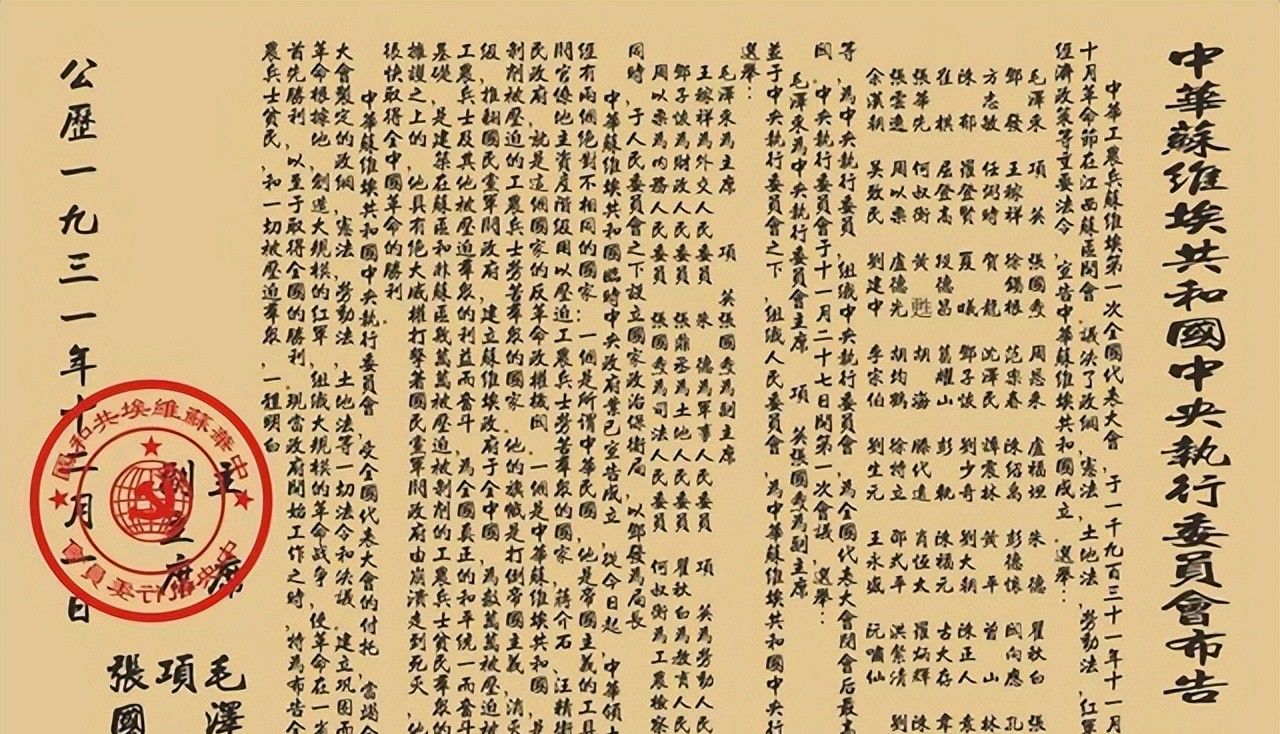 中華蘇維埃共和國中央執行委員會布告
中華工農兵蘇維埃第一次全國代表大會，于一千九百三十一年十一月
十月革命節在江西蘇區開會，議決了政綱，憲法，土地法，勞動法，紅軍
經濟政策等重要法令，宣告中華蘇維埃共和國成立。選舉：
毛澤東 項英 張國燾 周恩來 盧福坦 朱德 瞿秋白 張
鄧發 王稼祥 徐錫根 范樂春 陳紹禹 彭德懷 關向應 孔
方志敏 任弼時 賀龍 沈澤民 譚震林 黃平 曾山 林
陳郁 羅登賢 夏曦 鄧子恢 劉少奇 劉大朝 陳正人 袁
崔棋 屈登高 段德昌 葛耀山 彭軌 陳福元 古大存 韋
張華先 何叔衡 黃甦 胡海 滕代遠 肖恆太 羅炳輝 陳
張雲逸 周以栗 盧德光 胡均鶴 徐特立 邵式平 洪紫清 劉
余漢朝 吳致民 劉建中 李宗伯 劉生元 王永盛 阮嘯仙
等，為中央執行委員，組織中央執行委員會，為全國代表大會閉會后最高
國。中央執行委員會于十一月二十七日開第一次會議，選舉：
毛澤東為中央執行委員會主席，項英張國燾為副主席
並于中央執行委員會之下，組織人民委員會，為中華蘇維埃共和國中央行
選舉：
毛澤東為主席 項英張國燾為副主席
王稼祥為外交人民委員 朱德為軍事人民委員 項英為勞動人民
鄧子恢為財政人民委員 張鼎丞為土地人民委員 瞿秋白為教育人民
周以栗為內務人民委員 張國燾為司法人民委員 何叔衡為工農檢察
同時，于人民委員會之下設立國家政治保衛局，以鄧發為局長
中華蘇維埃共和國臨時中央政府業已宣告成立，從今日起，中華領土
經有兩個絕對不相同的國家：一個是所謂中華民國，他是帝國主義的工具
閥官僚地主資產階級用以壓迫工農兵士勞苦羣衆的國家，蔣介石，汪精衛
民政府，就是這個國家的反革命政權機關。一個是中華蘇維埃共和國，是
剝削被壓迫的工農兵士勞苦羣衆的國家。他的旗幟是打倒帝國主義，消灭
級，推翻國民黨軍閥政府，建立蘇維埃政府于全中國，為數萬萬被壓迫被
工農兵士及其他被壓迫羣衆的利益而奮斗，為全國真正的和平統一而奮斗
基礎，是建築在蘇區和非蘇區幾萬萬被壓迫被剝削的工農兵士貧民羣衆的
擁護之上的，他具有絕大威權打擊著國民黨軍閥政府由崩潰走到死灭，他
很快取得全中國革命的勝利
中華蘇維埃共和國中央執行委員會，受全國代表大會的付托，當竭
大會製定的政綱，憲法，勞動法，土地法等一切法令和决議，建立巩固而
革命根據地，創造大規模的紅軍，組織大規模的革命战争，使革命在一省
首先勝利，以至于取得全國的勝利。現當政府開始工作之時，特為布告全
農兵士貧民，和一切被壓迫羣衆，一體明白
主席 毛澤
副主席 項
張國
公歷一九三一年十二月一日
中華蘇維埃共和國
中央執行委員會